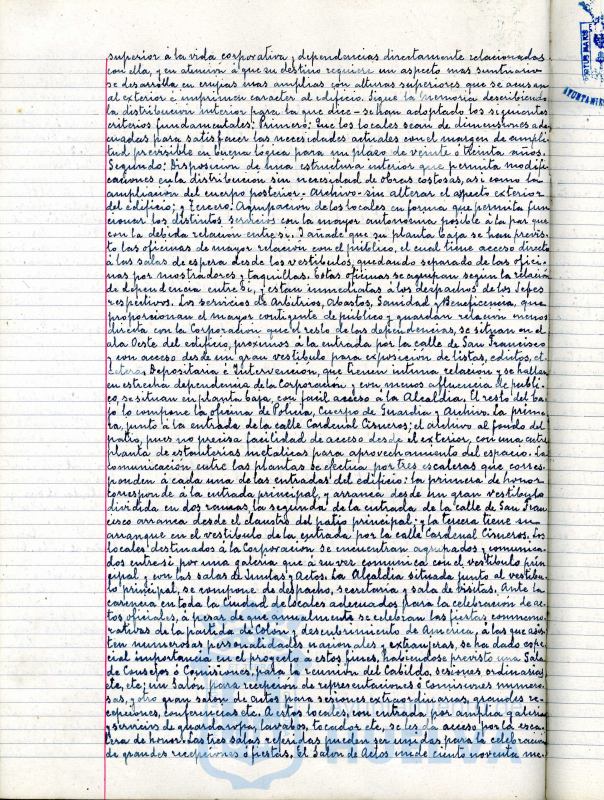 superior á la vida corporativa y dependencias directamente relacionadas
con ella, y en atención á que su destino requiere un aspecto mas suntuario
se desarrolla en crujías mas amplias con alturas superiores que se acusan
al exterior é imprimen caracter al edificio. Sigue la memoria describiendo
la distribución interior para la que dice - se han adoptado los siguientes
criterios fundamentales: Primero: Que los locales sean de dimensiones ade-
cuadas para satisfacer las necesidades actuales con el margen de ampli-
tud previsible en buena lógica para un plazo de veinte ó treinta años.
Segundo: Disposición de una estructura interior que permita modifi-
caciones en la distribución sin necesidad de obras costosas, así como la
ampliación del cuerpo posterior - Archivo - sin alterar el aspecto exterior
del edificio; y Tercero: Agrupación de los locales en forma que permita fun-
cionar los distintos servicios con la mayor autonomía posible á la par que
con la debida relación entre sí. Y añade que su planta baja se han previs-
to las oficinas de mayor relación con el público, el cual tiene acceso directo
á las salas de espera desde los vestíbulos, quedando separado de las ofici-
nas por mostradores y taquillas. Estas oficinas se agrupan según la relación
de dependencia entre sí, y están inmediatas á los despachos de los Jefes
respectivos. Los servicios de Arbitrios, Abastos, Sanidad y Beneficencia, que
proporcionan el mayor contigente de público y guardan relación menos
directa con la Corporación que el resto de las dependencias, se situan en el
ala Oeste del edificio, próximos á la entrada por la calle de San Francisco
y con acceso desde un gran vestíbulo para exposición de listas, edictos, et-
cétera. Depositaria é Intervención, que tienen intima relacion y se hallan
en estrecha dependencia de la Corporación y con menos afluencia de públi-
co, se situan en planta baja, con facil acceso á la Alcaldía. El resto del ba-
jo lo compone la oficina de Policía, Cuerpo de Guardia y Archivo. La prime-
ra, junto á la entrada de la calle Cardenal Cisneros; el archivo al fondo del
patio, pues no precisa facilidad de acceso desde el exterior, con una entre-
planta de estanterías metalicas para aprovechamiento del espacio. La
comunicación entre las plantas se efectua por tres escaleras que corres-
ponden á cada una de las entradas del edificio: la primera de honor
corresponde á la entrada principal, y arranca desde un gran vestíbulo
dividida en dos ramas, la segunda de la entrada de la calle de San Fran-
cisco arranca desde el claustro del patio principal; y la tercera tiene su
arranque en el vestíbulo de la entrada por la calle Cardenal Cisneros. Los
locales destinados á la Corporacion se encuentran agrupados y comunica-
dos entre si por una galería que á su vez comunica con el vestíbulo prin-
cipal y con las salas de Juntas y Actos. La Alcaldía situada junto al vestíbu-
lo principal, se compone de despacho, secretaría y sala de visitas. Ante la
carencia en toda la Ciudad de locales adecuados para la celebración de ac-
tos oficiales, á pesar de que anualmente se celebran las fiestas conmemo-
rativas de la partida de Colón y descubrimiento de America, á las que asis-
ten numerosas personalidades nacionales y extranjeras, se ha dado espe-
cial importancia en el proyecto á estos fines, habiéndose previsto una Sala
de Consejos ó Comisiones, para la reunion del Cabildo, sesiones ordinarias,
etc, etc; un Salón para recepcion de representaciones ó Comisiones numero-
sas, y otro gran salon de actos para sesiones extraordinarias, grandes re-
cepciones, conferencias etc. A estos locales, con entrada por amplia galería
y servicios de guardarropa, lavabos, tocador etc, se les da acceso por la esca-
lera de honor. Las tres salas referidas pueden ser unidas para la celebración
de grandes recepciones ó fiestas. El Salon de Actos mide ciento noventa me-